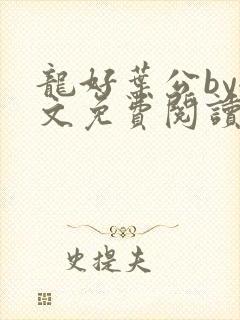 龍好葉公by
文免費閱讀
史提夫